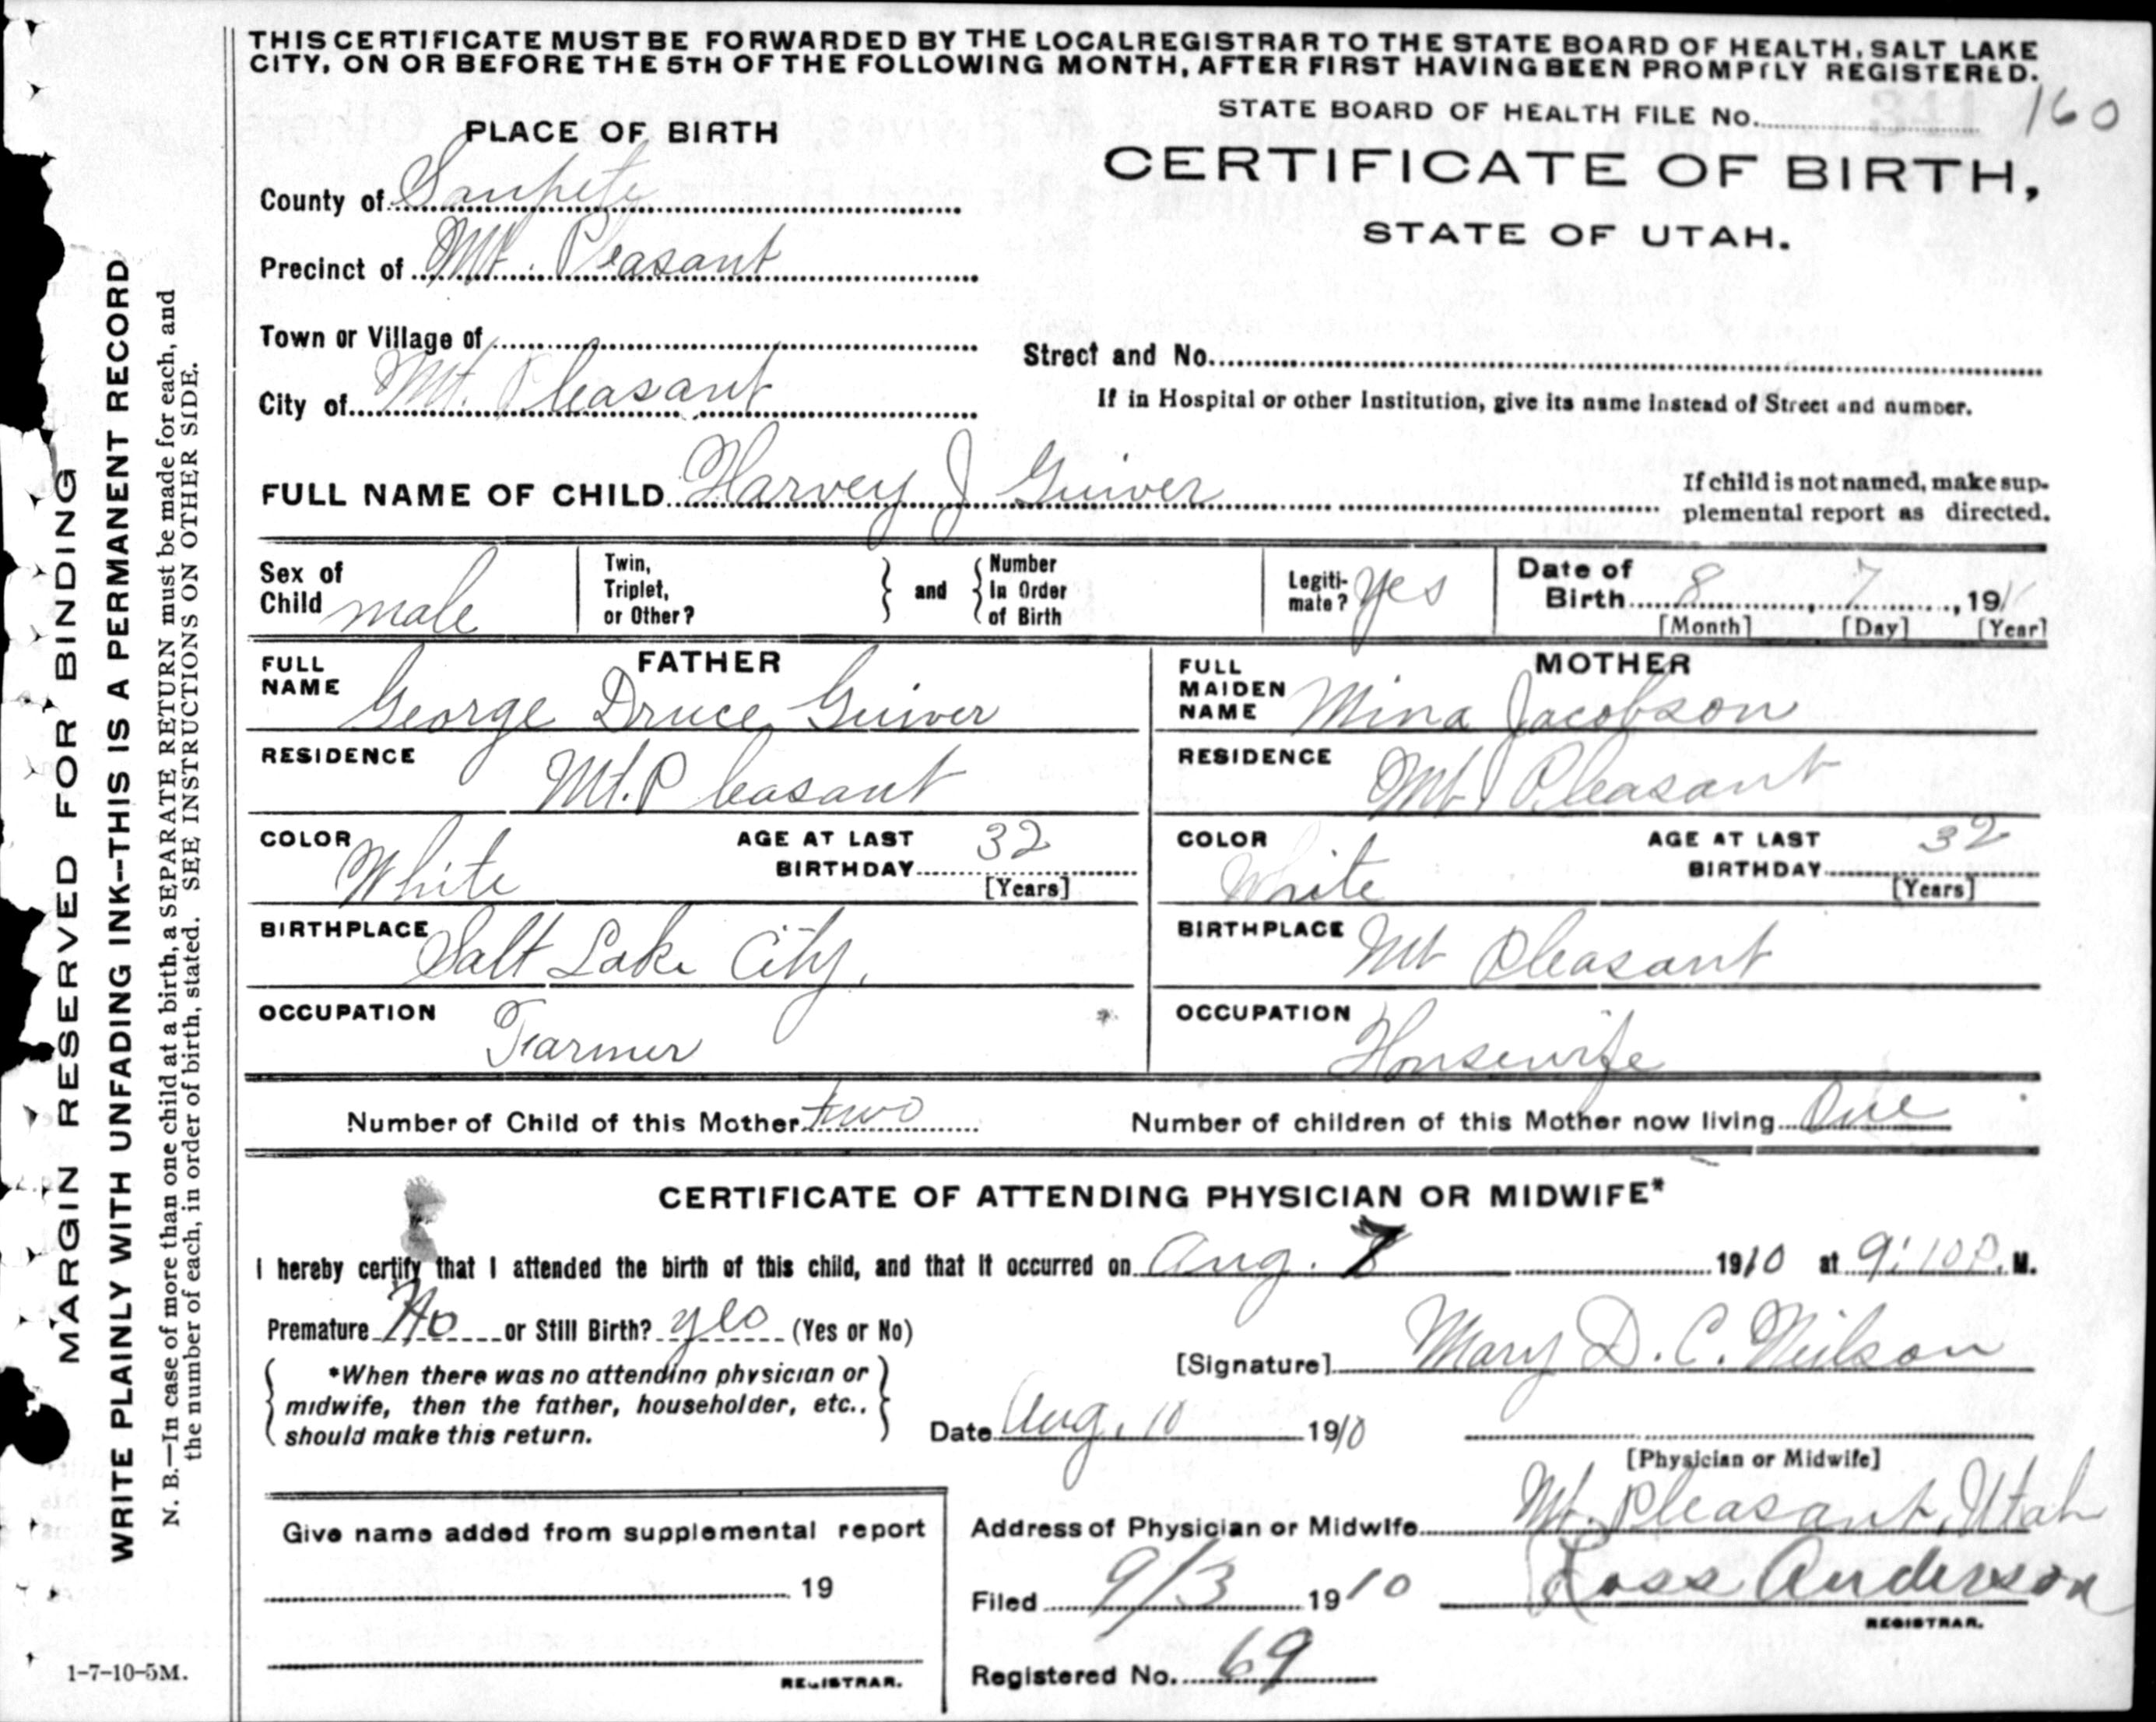 THIS CERTIFICATE MUST BE FORWARDED BY THE LOCAL REGISTRAR TO THE STATE BOARD OF HEALTH, SALT LAKE
CITY, ON OR BEFORE THE 5TH OF THE FOLLOWING MONTH, AFTER FIRST HAVING BEEN PROMPTLY REGISTERED.
STATE BOARD OF HEALTH FILE No. 341 160
PLACE OF BIRTH
CERTIFICATE OF BIRTH,
STATE OF UTAH.
County of Sanpete
Precinct of Mt. Pleasant
Town or Village of
Street and No.
City of Mt. Pleasant
If in Hospital or other Institution, give its name instead of Street and number.
FULL NAME OF CHILD Harvey J Guiver
If child is not named, make sup-
plemental report as directed.
Sex of Child male
Twin, Triplet, or Other?
and
Number In Order of Birth
Legiti-mate? Yes
Date of Birth 8, 7, 191
[Month] [Day] [Year]
FATHER
FULL NAME George Druce Guiver
RESIDENCE Mt. Pleasant
COLOR White
AGE AT LAST BIRTHDAY 32
[Years]
BIRTHPLACE Salt Lake City,
OCCUPATION Farmer
MOTHER
FULL MAIDEN NAME Mina Jacobson
RESIDENCE Mt. Pleasant
COLOR White
AGE AT LAST BIRTHDAY 32
[Years]
BIRTHPLACE Mt Pleasant
OCCUPATION Housewife
Number of Child of this Mother two
Number of children of this Mother now living One
CERTIFICATE OF ATTENDING PHYSICIAN OR MIDWIFE*
I hereby certify that I attended the birth of this child, and that it occurred on Aug. 7 1910 at 9:10 P. M.
Premature No or Still Birth? yes (Yes or No)
*When there was no attending physician or
midwife, then the father, householder, etc.,
should make this return.
[Signature] Mary D. C. Neilson
Date Aug. 10 1910
[Physician or Midwife]
Address of Physician or Midwife Mt. Pleasant, Utah
Give name added from supplemental report
19
REGISTRAR.
Filed 9/3 1910
Ross Anderson
REGISTRAR.
Registered No. 69
1-7-10-5M.
MARGIN RESERVED FOR BINDING
WRITE PLAINLY WITH UNFADING INK--THIS IS A PERMANENT RECORD
N. B.—In case of more than one child at a birth, a SEPARATE RETURN must be made for each, and
the number of each, in order of birth, stated. SEE INSTRUCTIONS ON OTHER SIDE.